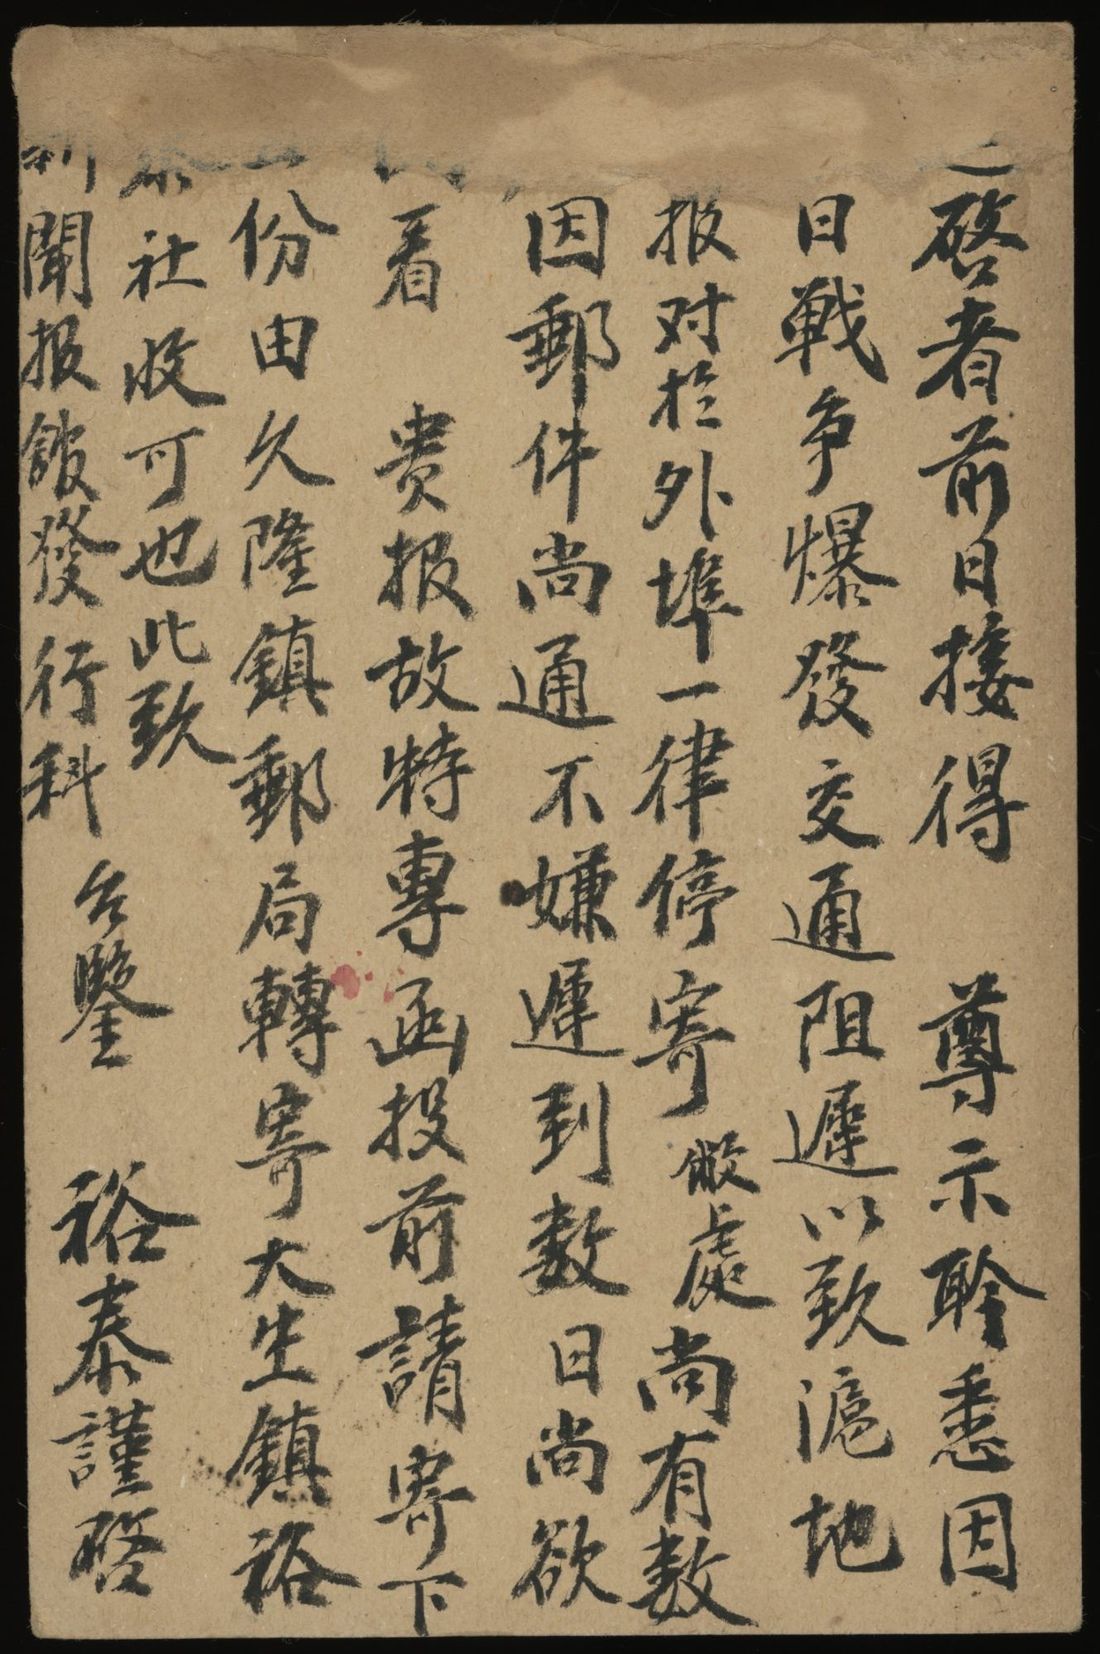 啓者前日接得　尊示聆悉因
日戰争爆發交通阻遲以致滬地
报对於外埠一律停寄敝處尚有数
因郵件尚通不嫌遲到数日尚欲
看　贵报故特專函投前請寄下
份由久隆鎮郵局轉寄大生鎮裕
泰社收可也此致
新聞报館發行科　台鑒
裕泰謹啓